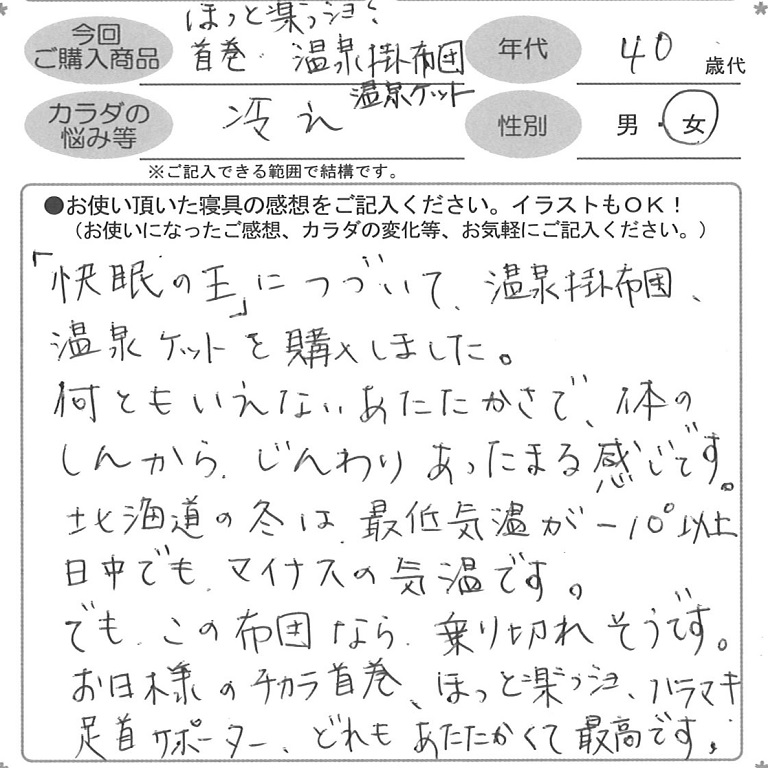 ほっと楽ッショ、
今回
ご購入商品
首巻 温泉掛布団
温泉ケット
年代
40 歳代
カラダの
悩み等
冷え
性別
男・女
※ご記入できる範囲で結構です。
●お使い頂いた寝具の感想をご記入ください。イラストもOK!
(お使いになったご感想、カラダの変化等、お気軽にご記入ください。)
「快眠の王」につづいて、温泉掛布団、
温泉ケットを購入しました。
何ともいえないあたたかさで、体の
しんから、じんわりあったまる感じです。
北海道の冬は、最低気温が-10°以上
日中でも、マイナスの気温です。
でも、この布団なら、乗り切れそうです。
お日様のチカラ首巻、ほっと楽ッショ、ハラマキ
足首サポーター、どれもあたたかくて最高です。